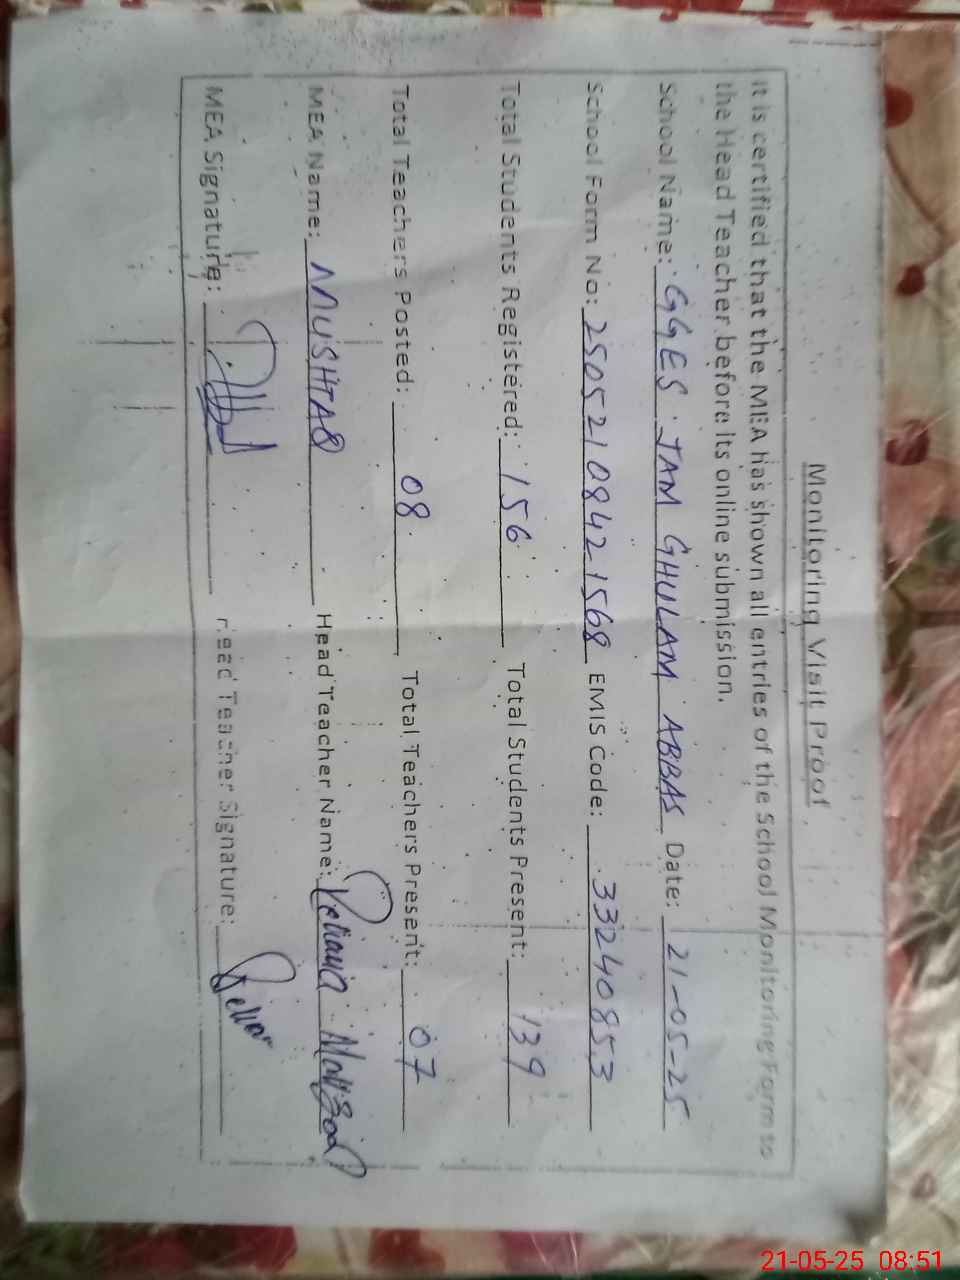 Monitoring Visit Proof
It is certified that the MEA has shown all entries of the School Monitoring Form to
the Head Teacher before its online submission.
School Name: GGES JAM GHULAM ABBAS Date: 21-05-25
School Form No: 25052108421568 EMIS Code: 33240853
Total Students Registered: 156 Total Students Present: 139
Total Teachers Posted: 08 Total Teachers Present: 07
MEA Name: MUSHTAQ Head Teacher Name:
MEA Signature: Head Teacher Signature:
21-05-25 08:51